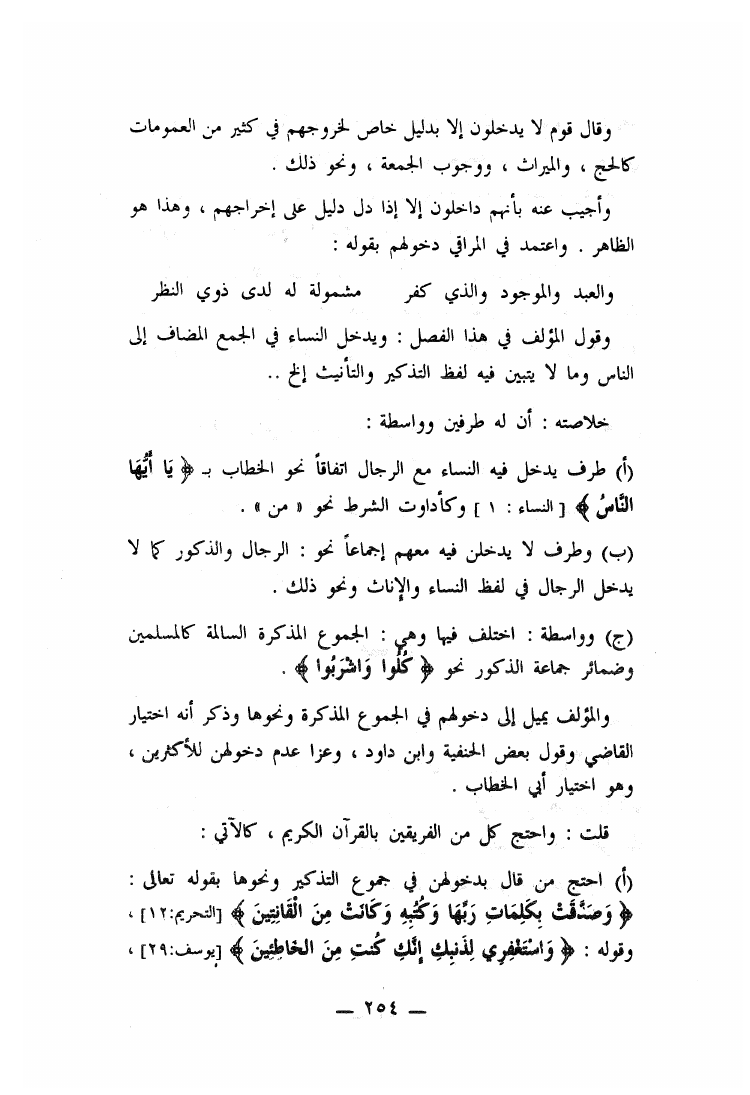 وقال قوم لا يدخلون إلا بدليل خاص لخروجهم في كثير من العمومات
كالحج ، والميراث ، ووجوب الجمعة ، ونحو ذلك .
وأجيب عنه بأنهم داخلون إلا إذا دل دليل على إخراجهم ، وهذا هو
الظاهر . واعتمد في المراقي دخولهم بقوله :
والعبد والموجود والذي كفر مشمولة له لدى ذوي النظر
وقول المؤلف في هذا الفصل : ويدخل النساء في الجمع المضاف إلى
الناس وما لا يتبين فيه لفظ التذكير والتأنيث إلخ ..
خلاصته : أن له طرفين وواسطة :
(أ) طرف يدخل فيه النساء مع الرجال اتفاقاً نحو الخطاب بـ ﴿ يَا أَيُّهَا
النَّاسُ ﴾ [ النساء : ١ ] وكأداوت الشرط نحو « من » .
(ب) وطرف لا يدخلن فيه معهم إجماعاً نحو : الرجال والذكور كما لا
يدخل الرجال في لفظ النساء والإناث ونحو ذلك .
(ج) وواسطة : اختلف فيها وهي : الجموع المذكرة السالمة كالمسلمين
وضمائر جماعة الذكور نحو ﴿ كُلُوا وَاشْرَبُوا ﴾ .
والمؤلف يميل إلى دخولهم في الجموع المذكرة ونحوها وذكر أنه اختيار
القاضي وقول بعض الحنفية وابن داود ، وعزا عدم دخولهن للأكثرين ،
وهو اختيار أبي الخطاب .
قلت : واحتج كل من الفريقين بالقرآن الكريم ، كالآتي :
(أ) احتج من قال بدخولهن في جموع التذكير ونحوها بقوله تعالى :
﴿ وَصَدَّقَتْ بِكَلِمَاتِ رَبِّهَا وَكُتُبِهِ وَكَانَتْ مِنَ الْقَانِتِينَ ﴾ [التحريم:١٢] ،
وقوله : ﴿ وَاسْتَغْفِرِي لِذَنبِكِ إِنَّكِ كُنتِ مِنَ الخَاطِئِينَ ﴾ [يوسف:٢٩] ،
— ٢٥٤ —